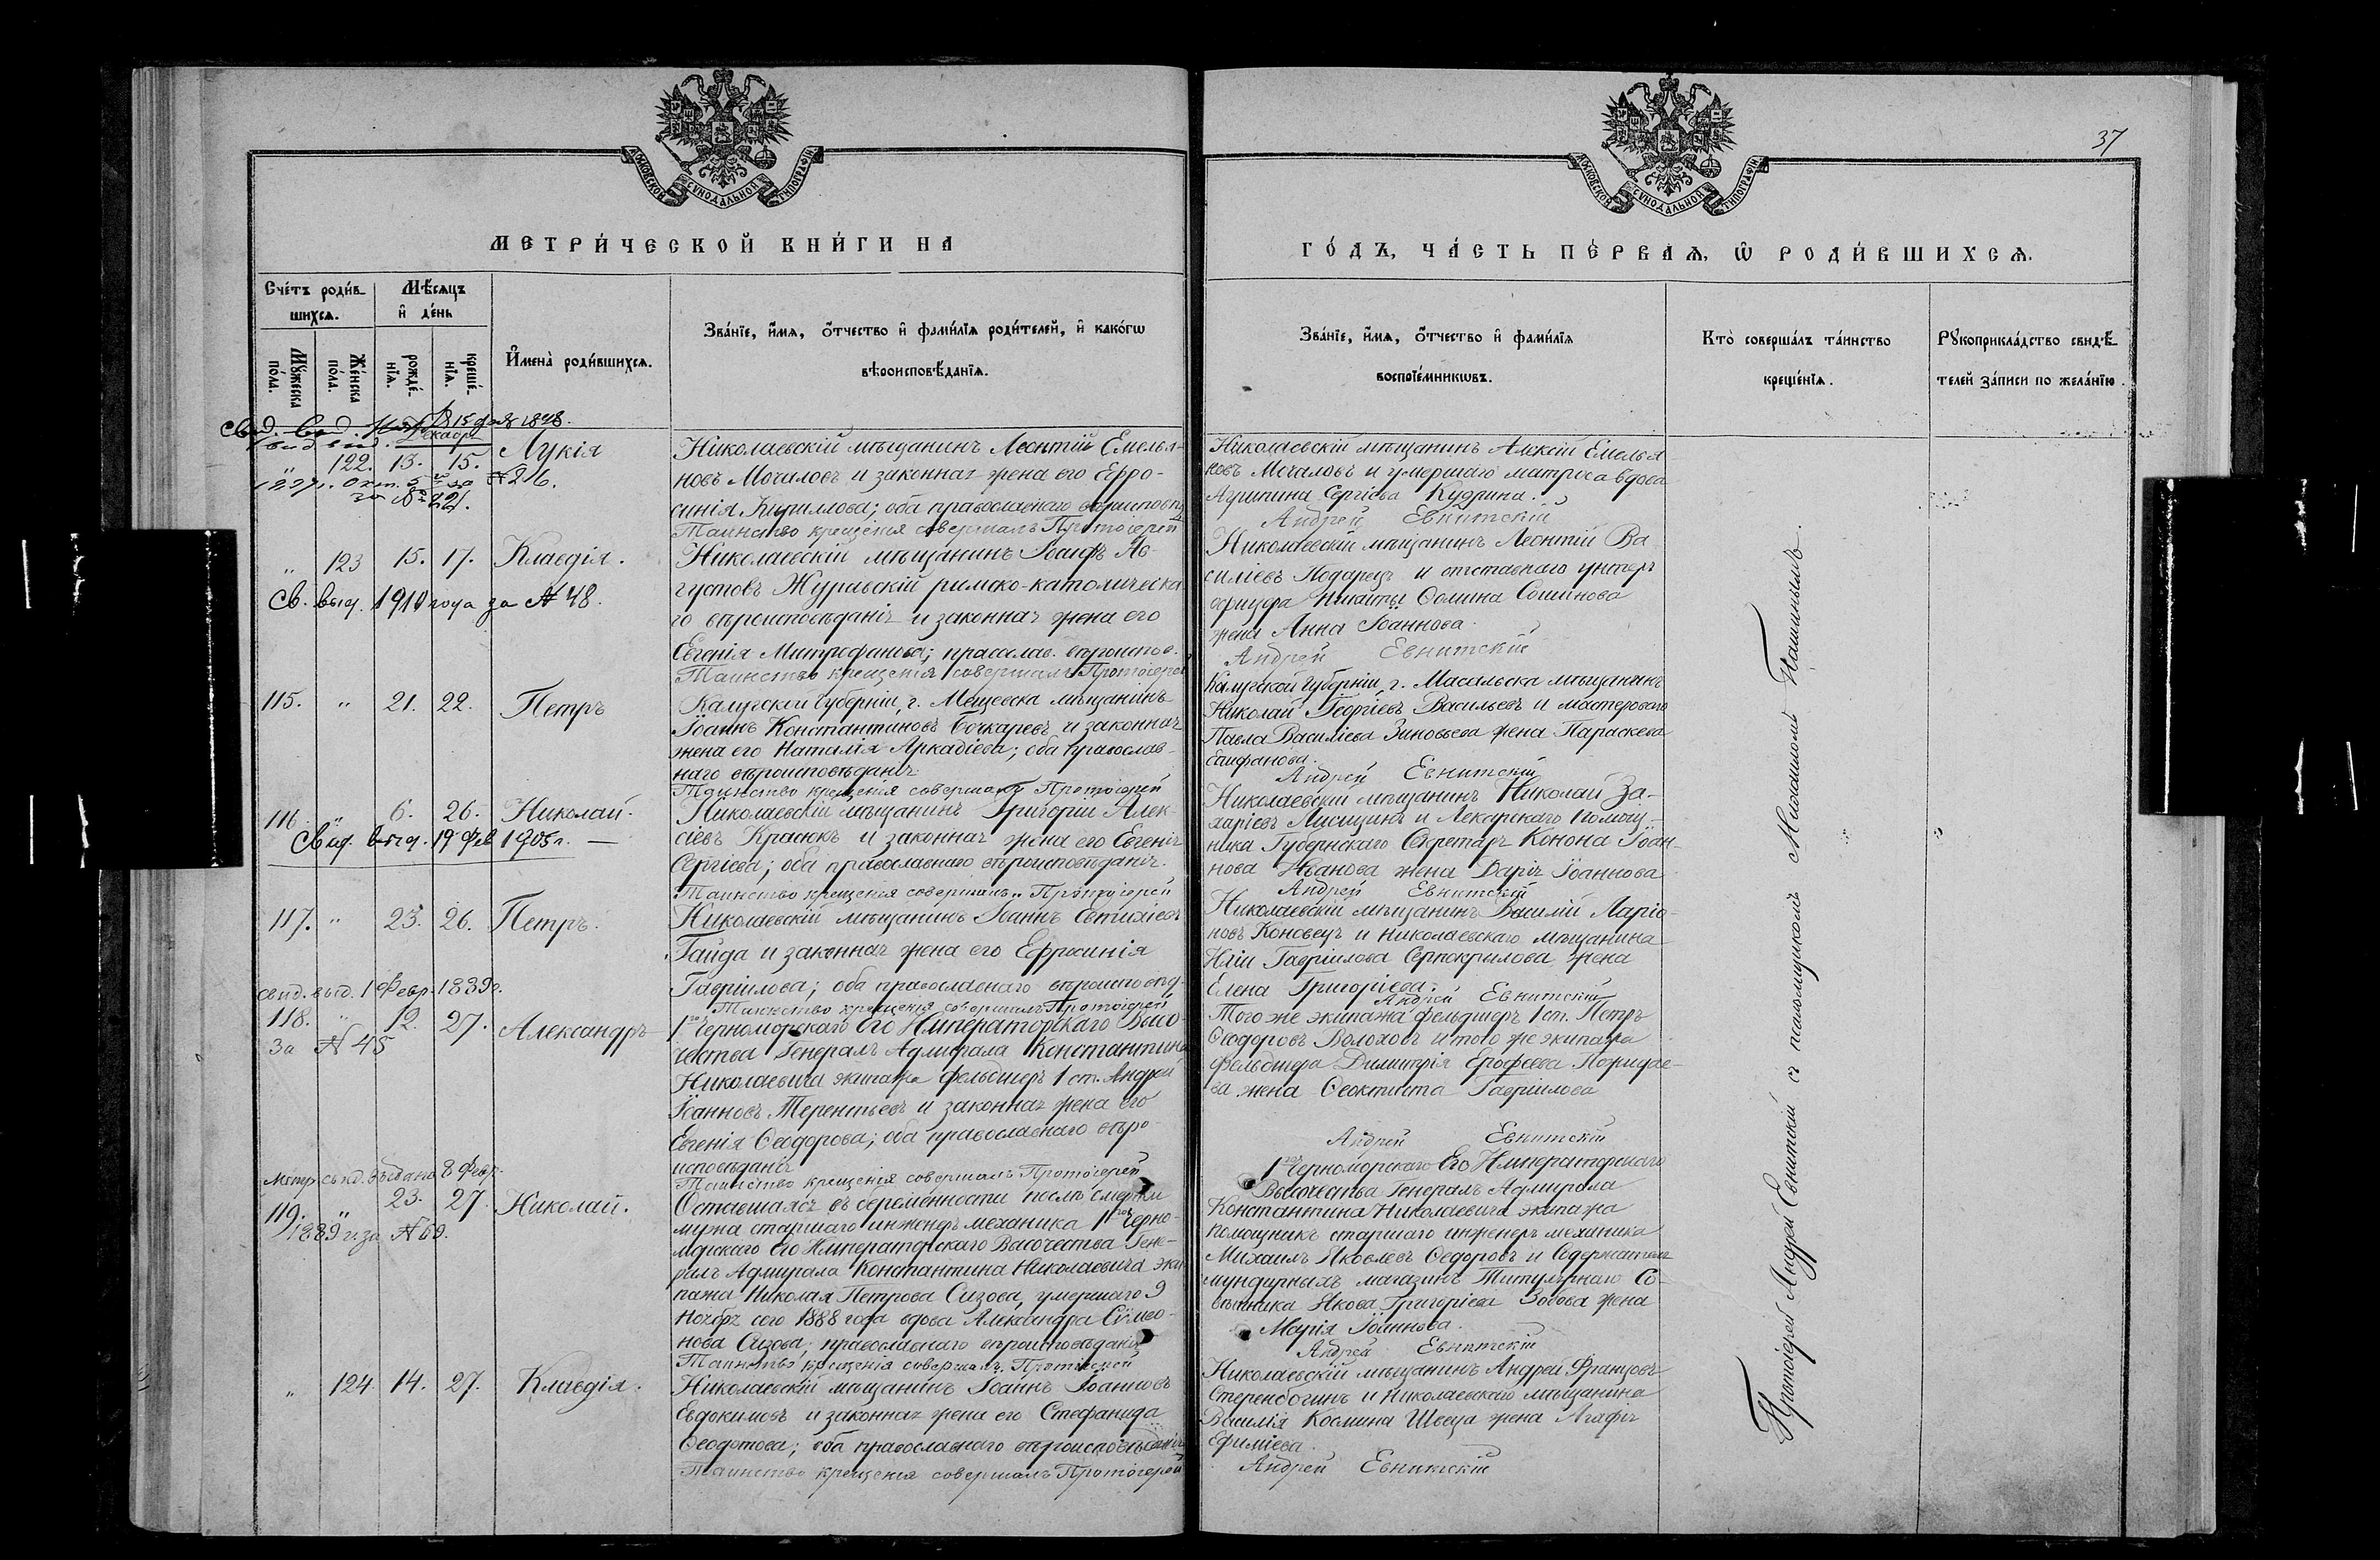 37
МОСКОВСКОЙ СѴНОДАЛЬНОЙ ТИПОГРАФІИ
МОСКОВСКОЙ СѴНОДАЛЬНОЙ ТИПОГРАФІИ
МЕТРИ́ЧЕСКОЙ КНИ́ГИ НА
ГО́ДЪ, ЧА́СТЬ ПЕ́РВАѦ, Ѡ҆ РОДИ́ВШИХСѦ.
Сче́тъ роди́в-
шихсѧ.
Мꙋ́жеска
по́ла.
Же́нска
по́ла.
Мѣ́сѧцъ
и҆ де́нь
рожде́-
нїѧ.
креще́-
нїѧ.
И҆мена̀ роди́вшихсѧ.
Зва́нїе, и҆́мѧ, ѻ҆́тчество и҆ фами́лїѧ роди́телей, и҆ како́гѡ
вѣроисповѣ́данїѧ.
Зва́нїе, и҆́мѧ, ѻ҆́тчество и҆ фами́лїѧ
воспрїе́мникѡвъ.
Кто̀ соверша́лъ та́инство
креще́нїѧ.
Рꙋкоприкла́дство свидѣ́-
телей за́писи по жела́нїю.
Декабрь
„ 122. 13. 15. Лукія
№ 216.
Николаевскій мѣщанинъ Леонтій Емелья-
новъ Мочаловъ и законная жена его Ефро-
синія Кирилова; оба православнаго вѣроисповѣд
Таинство крещенія совершалъ Протоіерей
Николаевскій мѣщанинъ Алексій Емелья-
новъ Мочаловъ и умершаго матроса вдова
Агрипина Сергіева Кудрина.
Андрей Евнитскій
„ 123 15. 17. Клавдія.
Св. выд. 1910 года за № 48.
Николаевскій мѣщанинъ Іосифъ Ав-
густовъ Журавскій римско-католическа-
го вѣроисповѣданія и законная жена его
Евгенія Митрофанова; православ. вѣроиспов.
Таинство крещенія совершалъ Протоіерей
Николаевскій мѣщанинъ Леонтій Ва
силіевъ и отставнаго унтеръ
офицера Никиты жена Анна Іоаннова.
Андрей Евнитскій
115. „ 21. 22. Петръ
Калужской Губерніи, г. Мещевска мѣщанинъ
Іоаннъ Константиновъ Бочкаревъ и законная
жена его Наталія Аркадіева; оба православ-
наго вѣроисповѣданія.
Таинство крещенія совершалъ Протоіерей
Калужской Губерніи, г. Масальска мѣщанинъ
Николай Георгіевъ Васильевъ и мастероваго
Павла Василіева Зиновьева жена Параскева
Епифанова.
Андрей Евнитскій
116. „ 6. 26. Николай.
Свид. выд. 19 Фев 1905 г. —
Николаевскій мѣщанинъ Григорій Алек-
сіевъ Краснюкъ и законная жена его Евгенія
Сергіева; оба православнаго вѣроисповѣданія.
Таинство крещенія совершалъ Протоіерей
Николаевскій мѣщанинъ Николай За-
харіевъ Лисицинъ и Лекарскаго помощ-
ника Губернскаго Секретаря Конона Іоан-
нова Иванова жена Дарія Іоаннова
Андрей Евнитскій
117. „ 23. 26. Петръ.
Николаевскій мѣщанинъ Іоаннъ
Гайда и законная жена его Ефросинія
Гавріилова; оба православнаго вѣроисповѣд-
Таинство крещенія совершалъ Протоіерей
Николаевскій мѣщанинъ Василій Ларіо-
новъ Коновецъ и николаевскаго мѣщанина
Иліи Гавріилова Серпокрылова жена
Елена Григоріева.
Андрей Евнитскій
свид. выд. 1 Февр. 1889 г.
118. „ 12. 27. Александръ
За № 45
1го Черноморскаго Его Императорскаго Высо-
чества Генералъ Адмирала Константина
Николаевича экипажа фельдшеръ 1 ст. Андрей
Іоанновъ Терентьевъ и законная жена его
Евгенія Ѳеодорова; оба православнаго вѣро-
исповѣданія
Таинство крещенія совершалъ Протоіерей
Того же экипажа фельдшеръ 1 ст. Петръ
Ѳеодоровъ Волоховъ и того же экипажа
фельдшера Димитрія Ерофеева
жена Ѳеоктиста Гавріилова
Андрей Евнитскій
Метр. свид. выдано 8 Февр.
119. „ 23. 27. Николай.
1889 г. за № 69.
Оставшаяся въ беременности послѣ смерти
мужа старшаго инженеръ механика 1го Черно-
морскаго Его Императорскаго Высочества Гене-
ралъ Адмирала Константина Николаевича эки-
пажа Николая Петрова Сизова, умершаго 9
Ноября сего 1888 года вдова Александра Сѵмео-
нова Сизова; православнаго вѣроисповѣданія
Таинство крещенія совершалъ Протоіерей
1го Черноморскаго Его Императорскаго
Высочества Генералъ Адмирала
Константина Николаевича экипажа
помощникъ старшаго инженеръ механика
Михаилъ Яковлевъ Ѳедоровъ и Содержателя
мундирныхъ магазинъ Титулярнаго Со-
вѣтника Якова Григоріева Зобова жена
Марія Іоаннова.
Андрей Евнитскій
„ 124 14. 27. Клавдія.
Николаевскій мѣщанинъ Іоаннъ Іоанновъ
Евдокимовъ и законная жена его Стефанида
Ѳеодотова; оба православнаго вѣроисповѣданія
Таинство крещенія совершалъ Протоіерей
Николаевскій мѣщанинъ Андрей Францовъ
Стеренбогинъ и Николаевскаго мѣщанина
Василія Космина Швеца жена Агафія
Ефиміева.
Андрей Евнитскій
Протоіерей Андрей Евнитскій съ псаломщикомъ